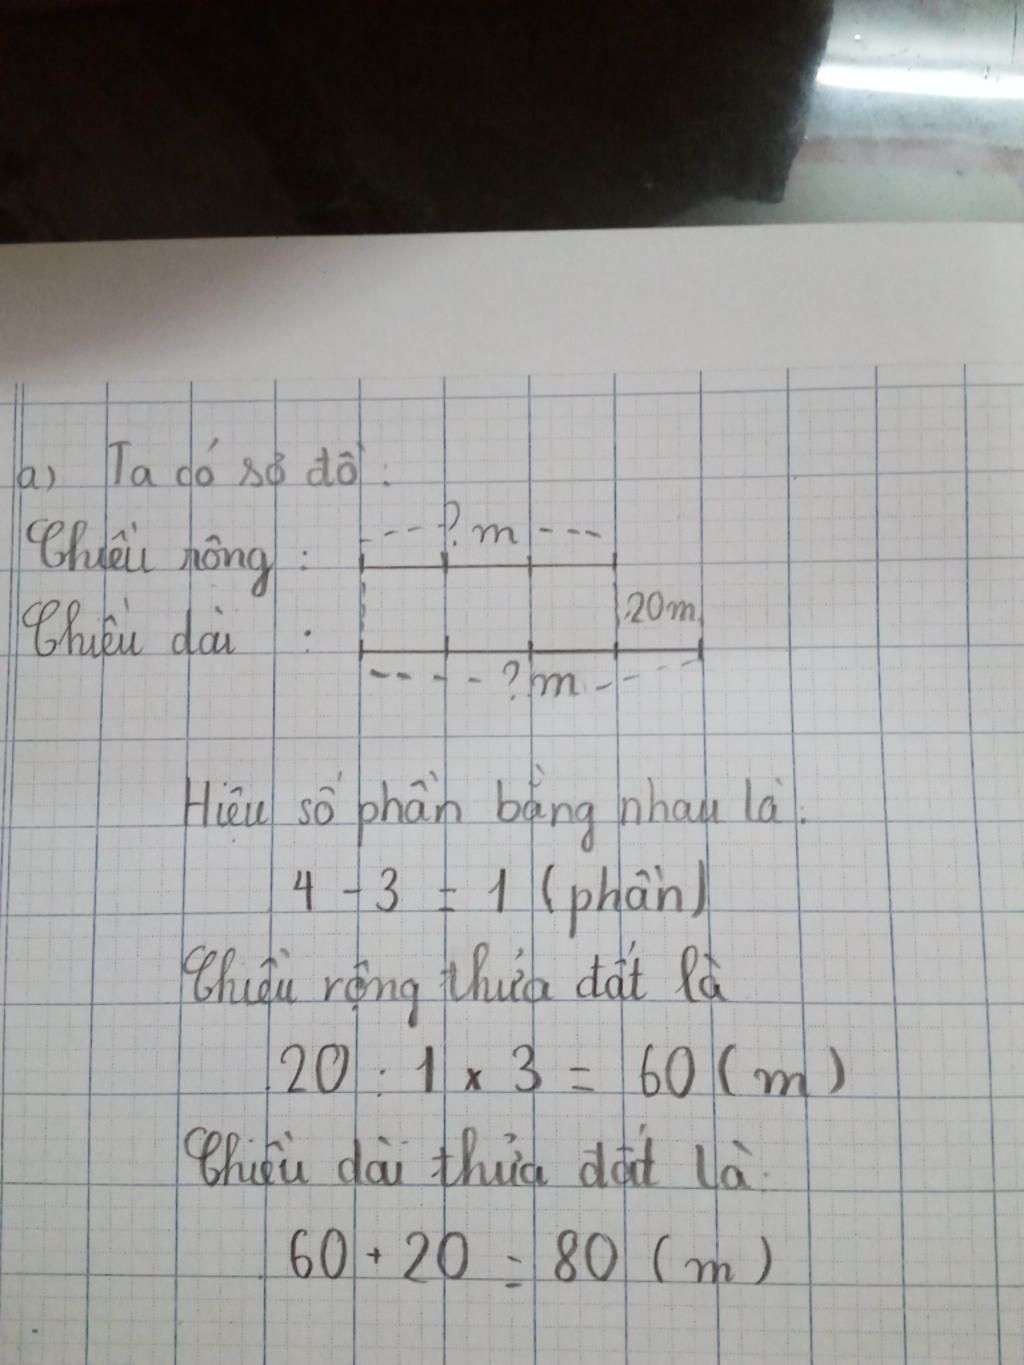 a) Ta có sơ đồ:
? m
Chiều rộng :
20m
Chiều dài :
? m
Hiệu số phần bằng nhau là:
4 - 3 = 1 (phần)
Chiều rộng thửa đất là
20 : 1 x 3 = 60 (m)
Chiều dài thửa đất là:
60 + 20 = 80 (m)